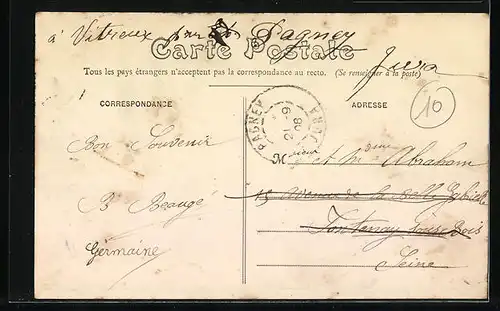 à Vitreux par Pagney
Carte Postale
Jura
Tous les pays étrangers n'acceptent pas la correspondance au recto. (Se renseigner à la poste)
CORRESPONDANCE
ADRESSE
10
PAGNEY
JURA
21 -9
08
Bon Souvenir
B Beaugé
Germaine
Monsieur et Mme Abraham
15 Avenue de la Belle Gabrielle
Fontenay sous Bois
Seine